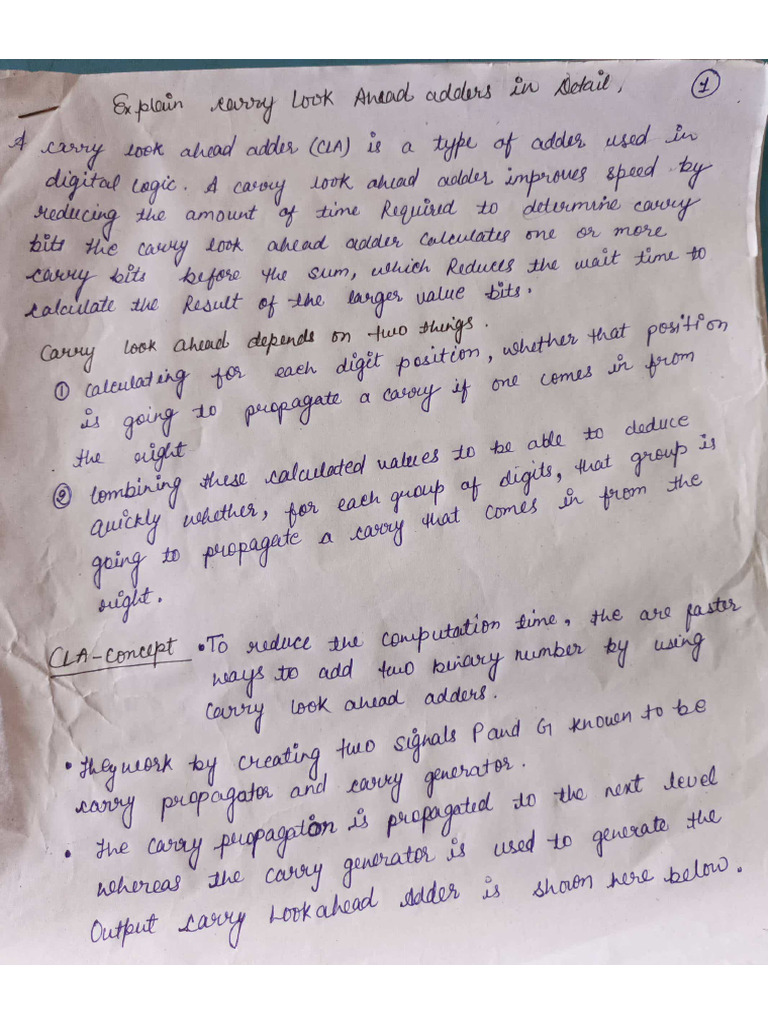 Explain carry look Ahead adders in Detail, ①
A carry look ahead adder (CLA) is a type of adder used in
digital logic. A carry look ahead adder improves speed by
reducing the amount of time Required to determine carry
bits the carry look ahead adder calculates one or more
carry bits before the sum, which Reduces the wait time to
calculate the Result of the larger value bits.
Carry look ahead depends on two things.
① Calculating for each digit position, whether that position
is going to propagate a carry if one comes in from
the right
② Combining these calculated values to be able to deduce
quickly whether, for each group of digits, that group is
going to propagate a carry that comes in from the
right.
CLA-Concept • To reduce the computation time, the are faster
ways to add two binary number by using
carry look ahead adders.
• they work by creating two signals P and G known to be
carry propagator and carry generator.
• the carry propagation is propagated to the next level
whereas the carry generator is used to generate the
Output carry Look ahead Adder is shown here below.